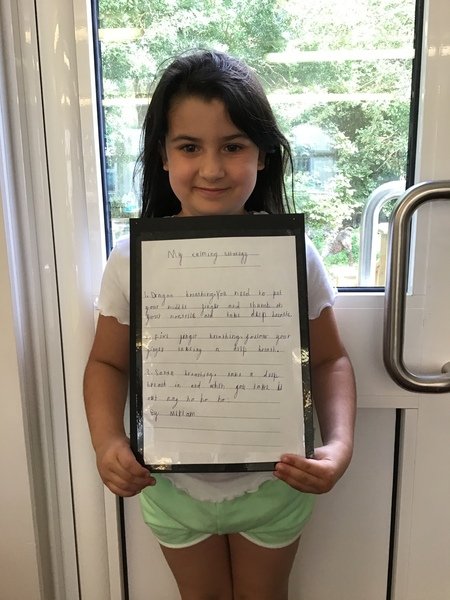 My calming strategy
1. Dragon breathing. You need to put
your middle finger and thumb on
your nostrils and take deep breaths.
2. Five finger breathing. follow your
finger taking a deep breath.
3. Santa breathing. take a deep
breath in and when you take it
out say ho ho ho.
By Miriam